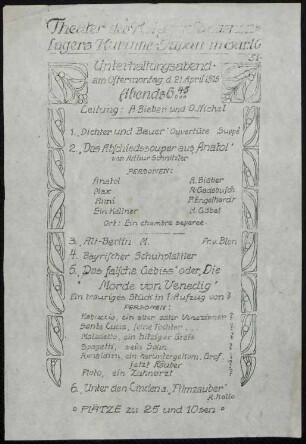 Theater des
Lagers Kurume Japan
Unterhaltungsabend
am Ostermontag d. 21 April 1915
Abends 6,45
Leitung: A. Bieber und O. Michel
1. „Dichter und Bauer" Ouvertüre Suppé
2. „Das Abschiedssouper aus Anatol"
von Arthur Schnitzler
PERSONEN:
Anatol A. Bieber
Max R. Gadebusch
Anni P. Engelhardt
Ein Kellner M. Göbel
Ort: Ein chambre separee
3. „Alt-Berlin M. Fr. v. Blon
4. Bayrischer Schuhplattler
5. „Das falsche Gebiss" oder „Die
Morde von Venedig"
Ein trauriges Stück in 1. Aufzug von ?
PERSONEN:
ein alter Venezianer ?
Santa Lucia, seine Tochter ?
ein hitziger Greis ?
Spagetti, sein Sohn ?
Rinaldini, ein heruntergekom. Graf
jetzt Räuber ?
ein Zahnarzt ?
6. „Unter den Linden a. „Filmzauber"
Kollo
PLÄTZE zu 25 und 10 sen